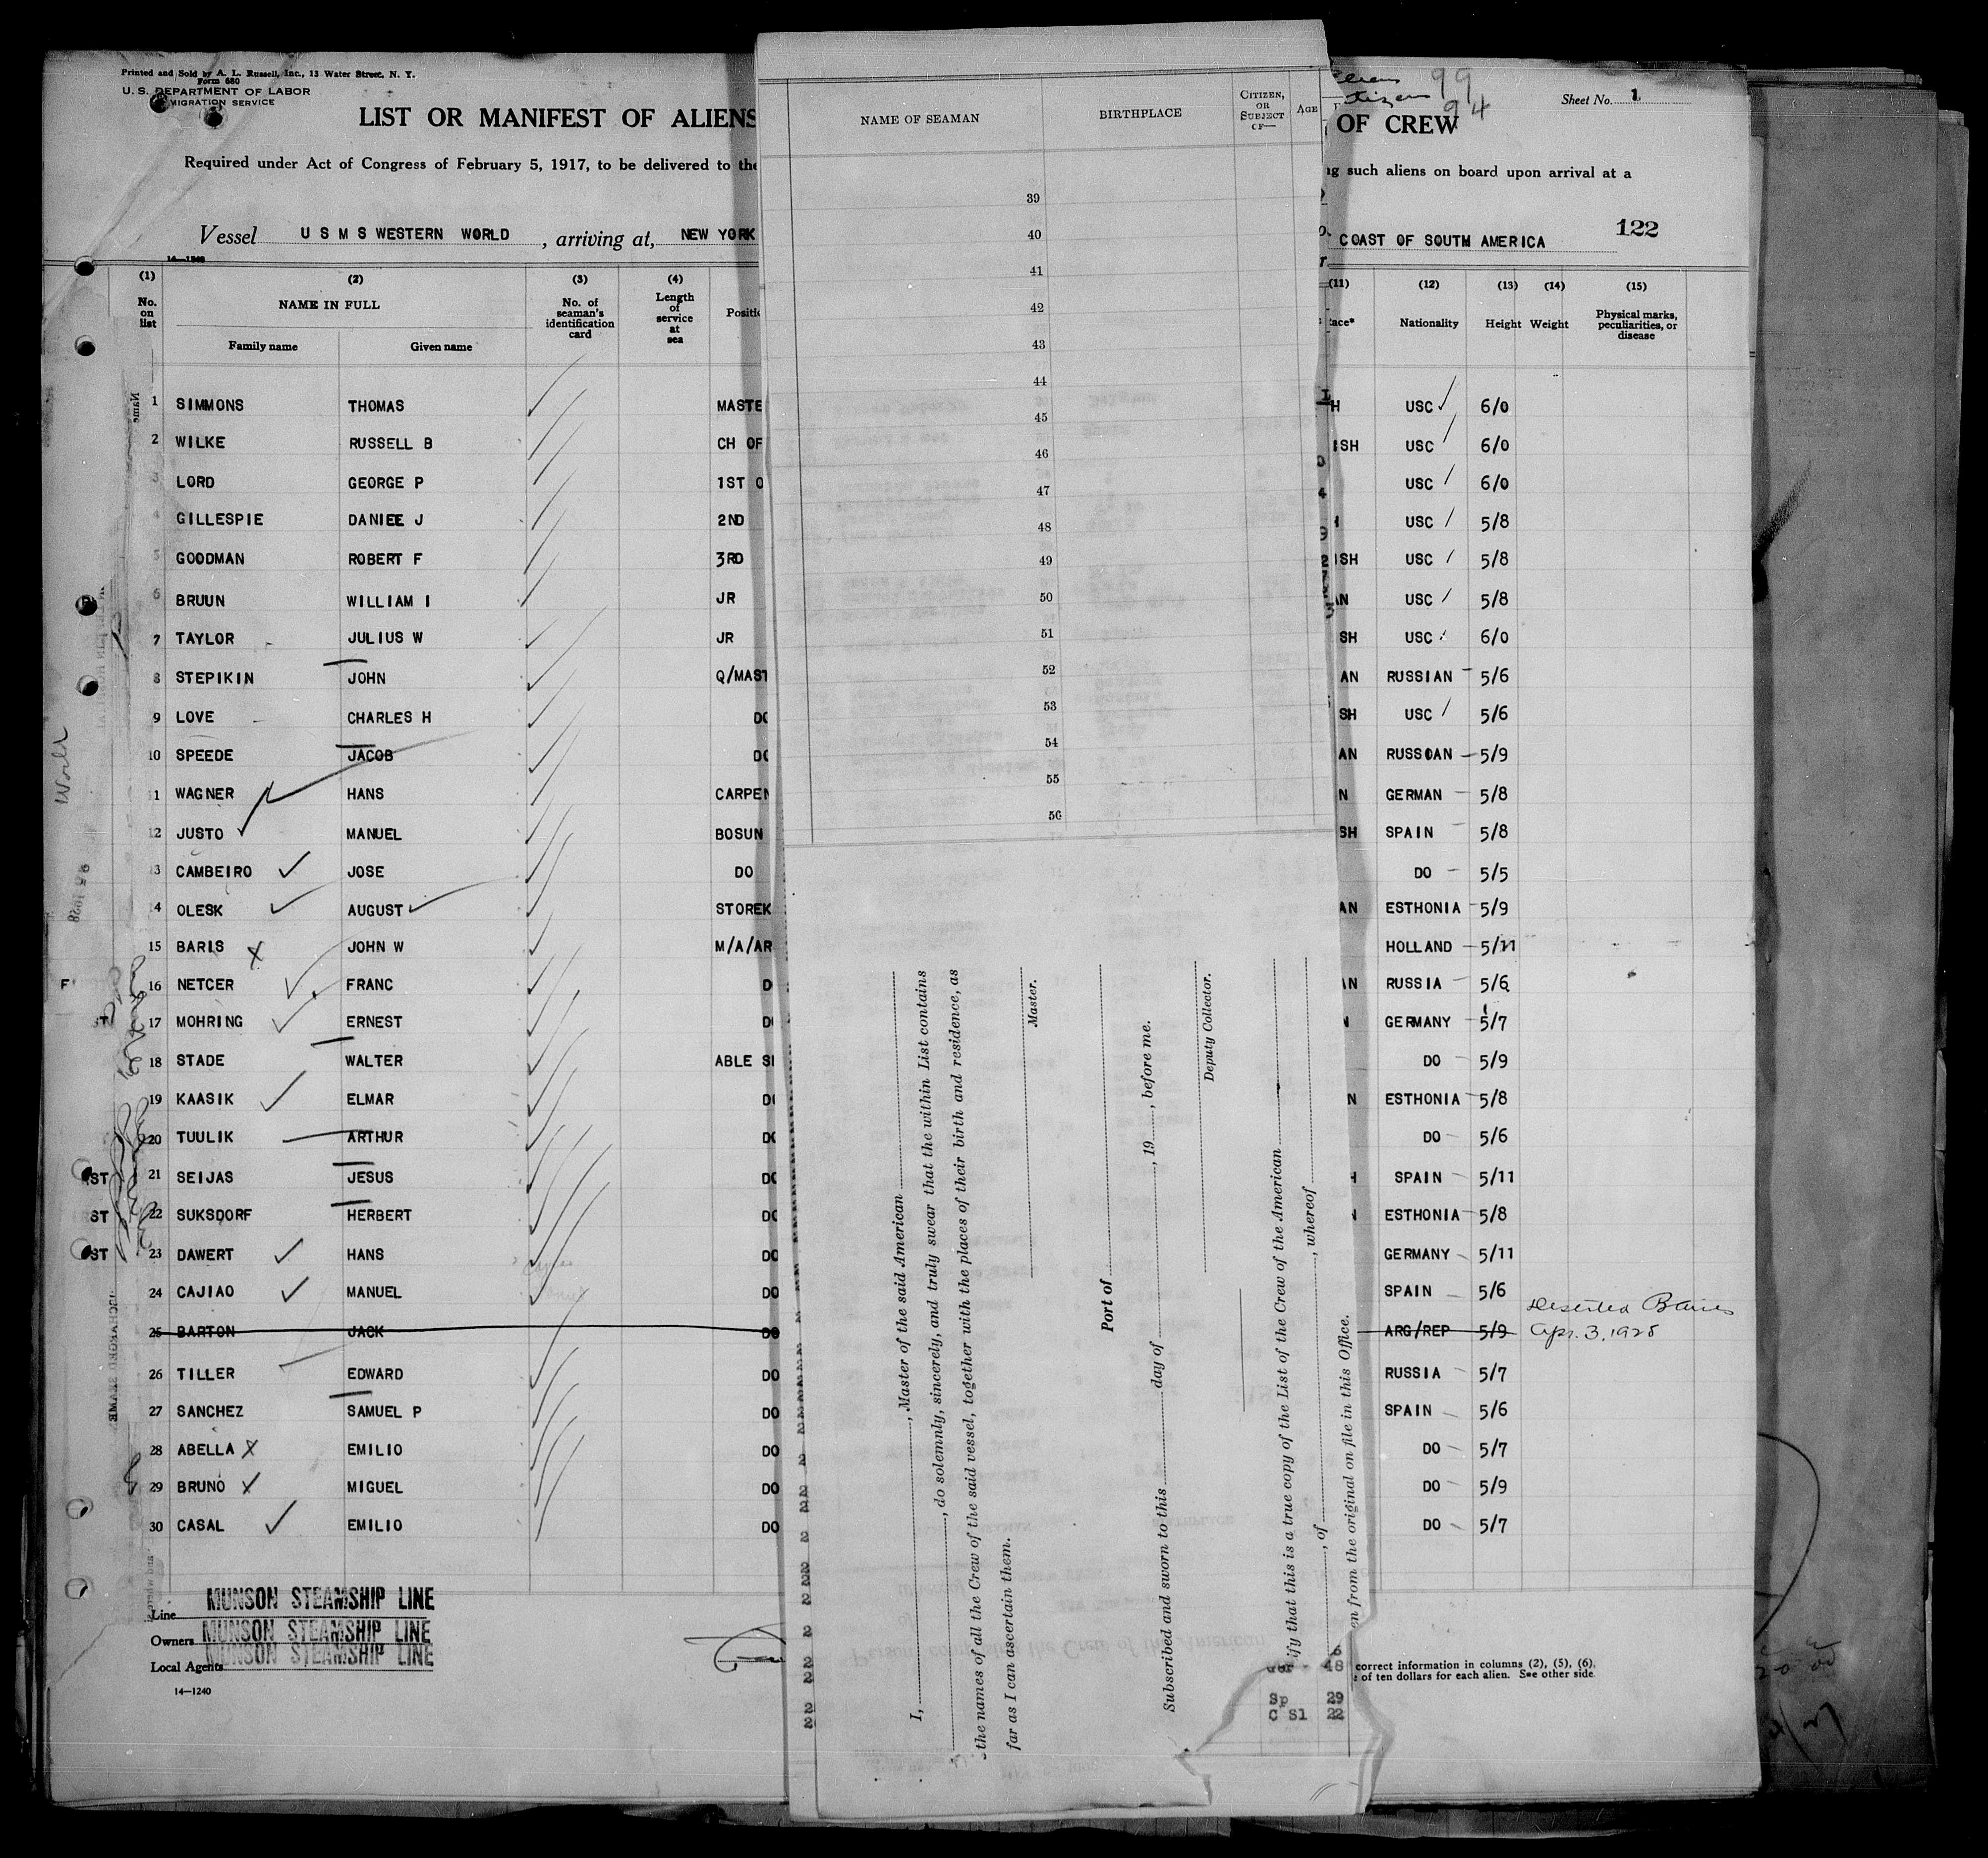 Printed and Sold by A. L. Russell, Inc., 13 Water Street, N. Y.
Form 680
U. S. DEPARTMENT OF LABOR
MIGRATION SERVICE
Sheet No. 1
99
94
LIST OR MANIFEST OF ALIENS OF CREW
Required under Act of Congress of February 5, 1917, to be delivered to the such aliens on board upon arrival at a
122
Vessel U S M S WESTERN WORLD, arriving at, NEW YORK COAST OF SOUTH AMERICA
14—1240
(1) (2) (3) (4) (11) (12) (13) (14) (15)
No. on list NAME IN FULL No. of seaman's identification card Length of service at sea Nationality Height Weight Physical marks, peculiarities, or disease
Family name Given name
1 SIMMONS THOMAS MASTE H USC 6/0
2 WILKE RUSSELL B CH OF ISH USC 6/0
LORD GEORGE P 1ST O USC 6/0
GILLESPIE DANIEE J 2ND USC 5/8
5 GOODMAN ROBERT F 3RD ISH USC 5/8
6 BRUUN WILLIAM I JR AN USC 5/8
7 TAYLOR JULIUS W JR SH USC 6/0
8 STEPIKIN JOHN Q/MAST AN RUSSIAN 5/6
9 LOVE CHARLES H DO SH USC 5/6
10 SPEEDE JACOB DO AN RUSSOAN 5/9
11 WAGNER HANS CARPEN N GERMAN 5/8
12 JUSTO MANUEL BOSUN SH SPAIN 5/8
13 CAMBEIRO JOSE DO DO 5/5
14 OLESK AUGUST STOREK AN ESTHONIA 5/9
15 BARIS JOHN W M/A/AR HOLLAND 5/11
16 NETCER FRANC D AN RUSSIA 5/6
17 MOHRING ERNEST DO N GERMANY 5/7
18 STADE WALTER ABLE S DO 5/9
19 KAASIK ELMAR DO N ESTHONIA 5/8
20 TUULIK ARTHUR DO DO 5/6
21 SEIJAS JESUS DO H SPAIN 5/11
22 SUKSDORF HERBERT DO N ESTHONIA 5/8
23 DAWERT HANS DO GERMANY 5/11
24 CAJIAO MANUEL DO SPAIN 5/6
25 BARTON JACK DO ARG/REP 5/9 Deserted B Aires Apr. 3, 1928
26 TILLER EDWARD DO RUSSIA 5/7
27 SANCHEZ SAMUEL P DO SPAIN 5/6
28 ABELLA EMILIO DO DO 5/7
29 BRUNO MIGUEL DO DO 5/9
30 CASAL EMILIO DO DO 5/7
Line MUNSON STEAMSHIP LINE
Owners MUNSON STEAMSHIP LINE
Local Agents MUNSON STEAMSHIP LINE
14—1240
correct information in columns (2), (5), (6).
of ten dollars for each alien. See other side.
World
NAME OF SEAMAN BIRTHPLACE CITIZEN, OR SUBJECT OF— AGE
39
40
41
42
43
44
45
46
47
48
49
50
51
52
53
54
55
56
I, , Master of the said American
, do solemnly, sincerely, and truly swear that the within List contains
the names of all the Crew of the said vessel, together with the places of their birth and residence, as
far as I can ascertain them.
Master.
Port of
Subscribed and sworn to this day of , 19 , before me.
Deputy Collector.
ify that this is a true copy of the List of the Crew of the American
, of , whereof
en from the original on file in this Office.
48
Sp 29
C Sl 22